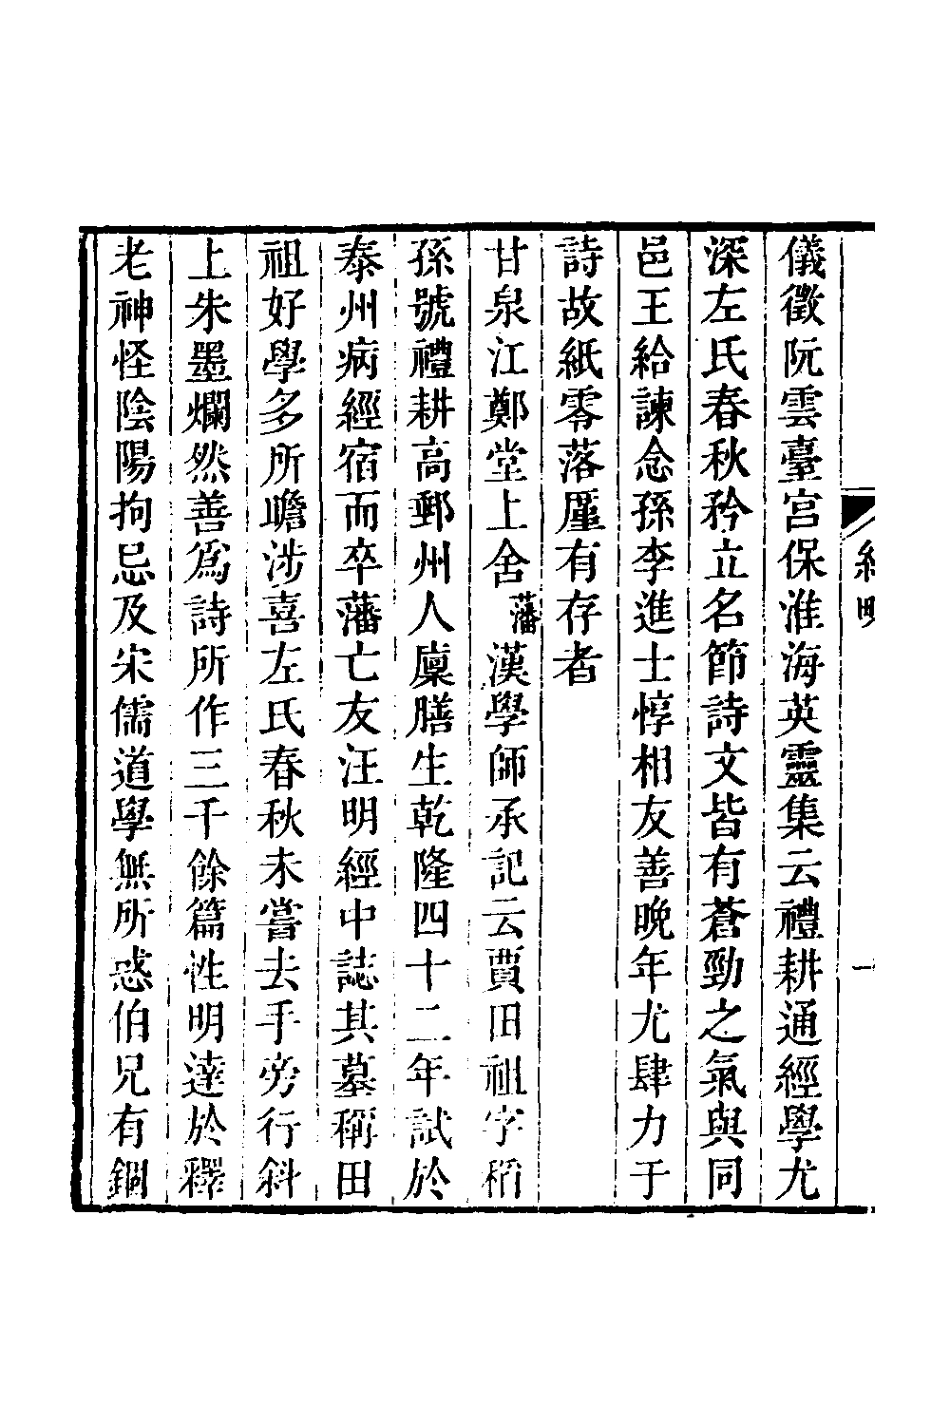 儀徵阮雲臺宮保淮海英靈集云禮耕通經學尤
深左氏春秋矜立名節詩文皆有蒼勁之氣與同
邑王給諫念孫李進士惇相友善晚年尤肆力于
詩故紙零落厪有存者
甘泉江鄭堂上舍藩漢學師承記云賈田祖字稻
孫號禮耕高郵州人廩膳生乾隆四十二年試於
泰州病經宿而卒藩亡友汪明經中誌其墓稱田
祖好學多所瞻涉喜左氏春秋未嘗去手旁行斜
上朱墨爛然善爲詩所作三千餘篇性明達於釋
老神怪陰陽拘忌及宋儒道學無所惑伯兄有錮